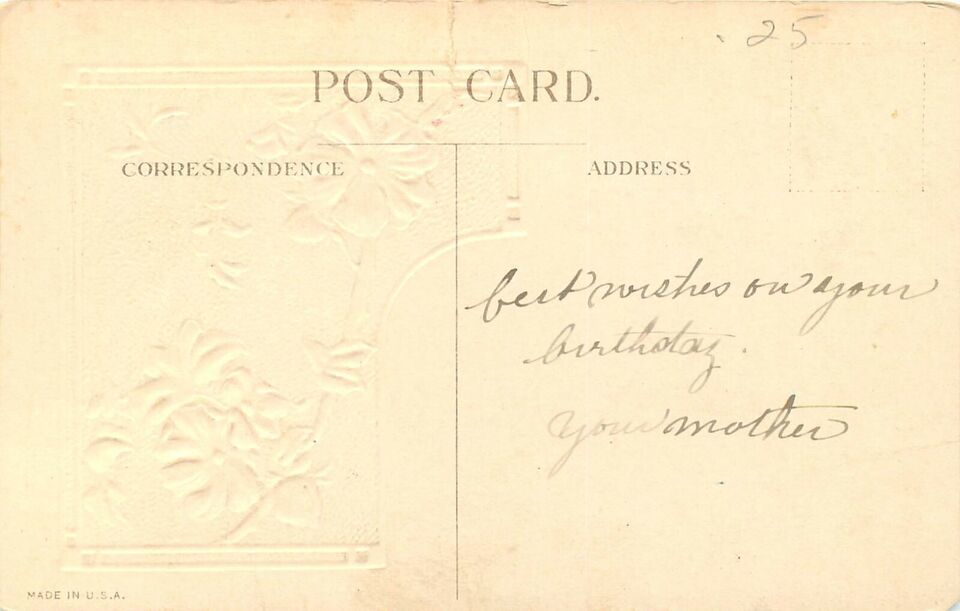 25
POST CARD.
CORRESPONDENCE
ADDRESS
best wishes on your
birthday.
your mother
MADE IN U.S.A.